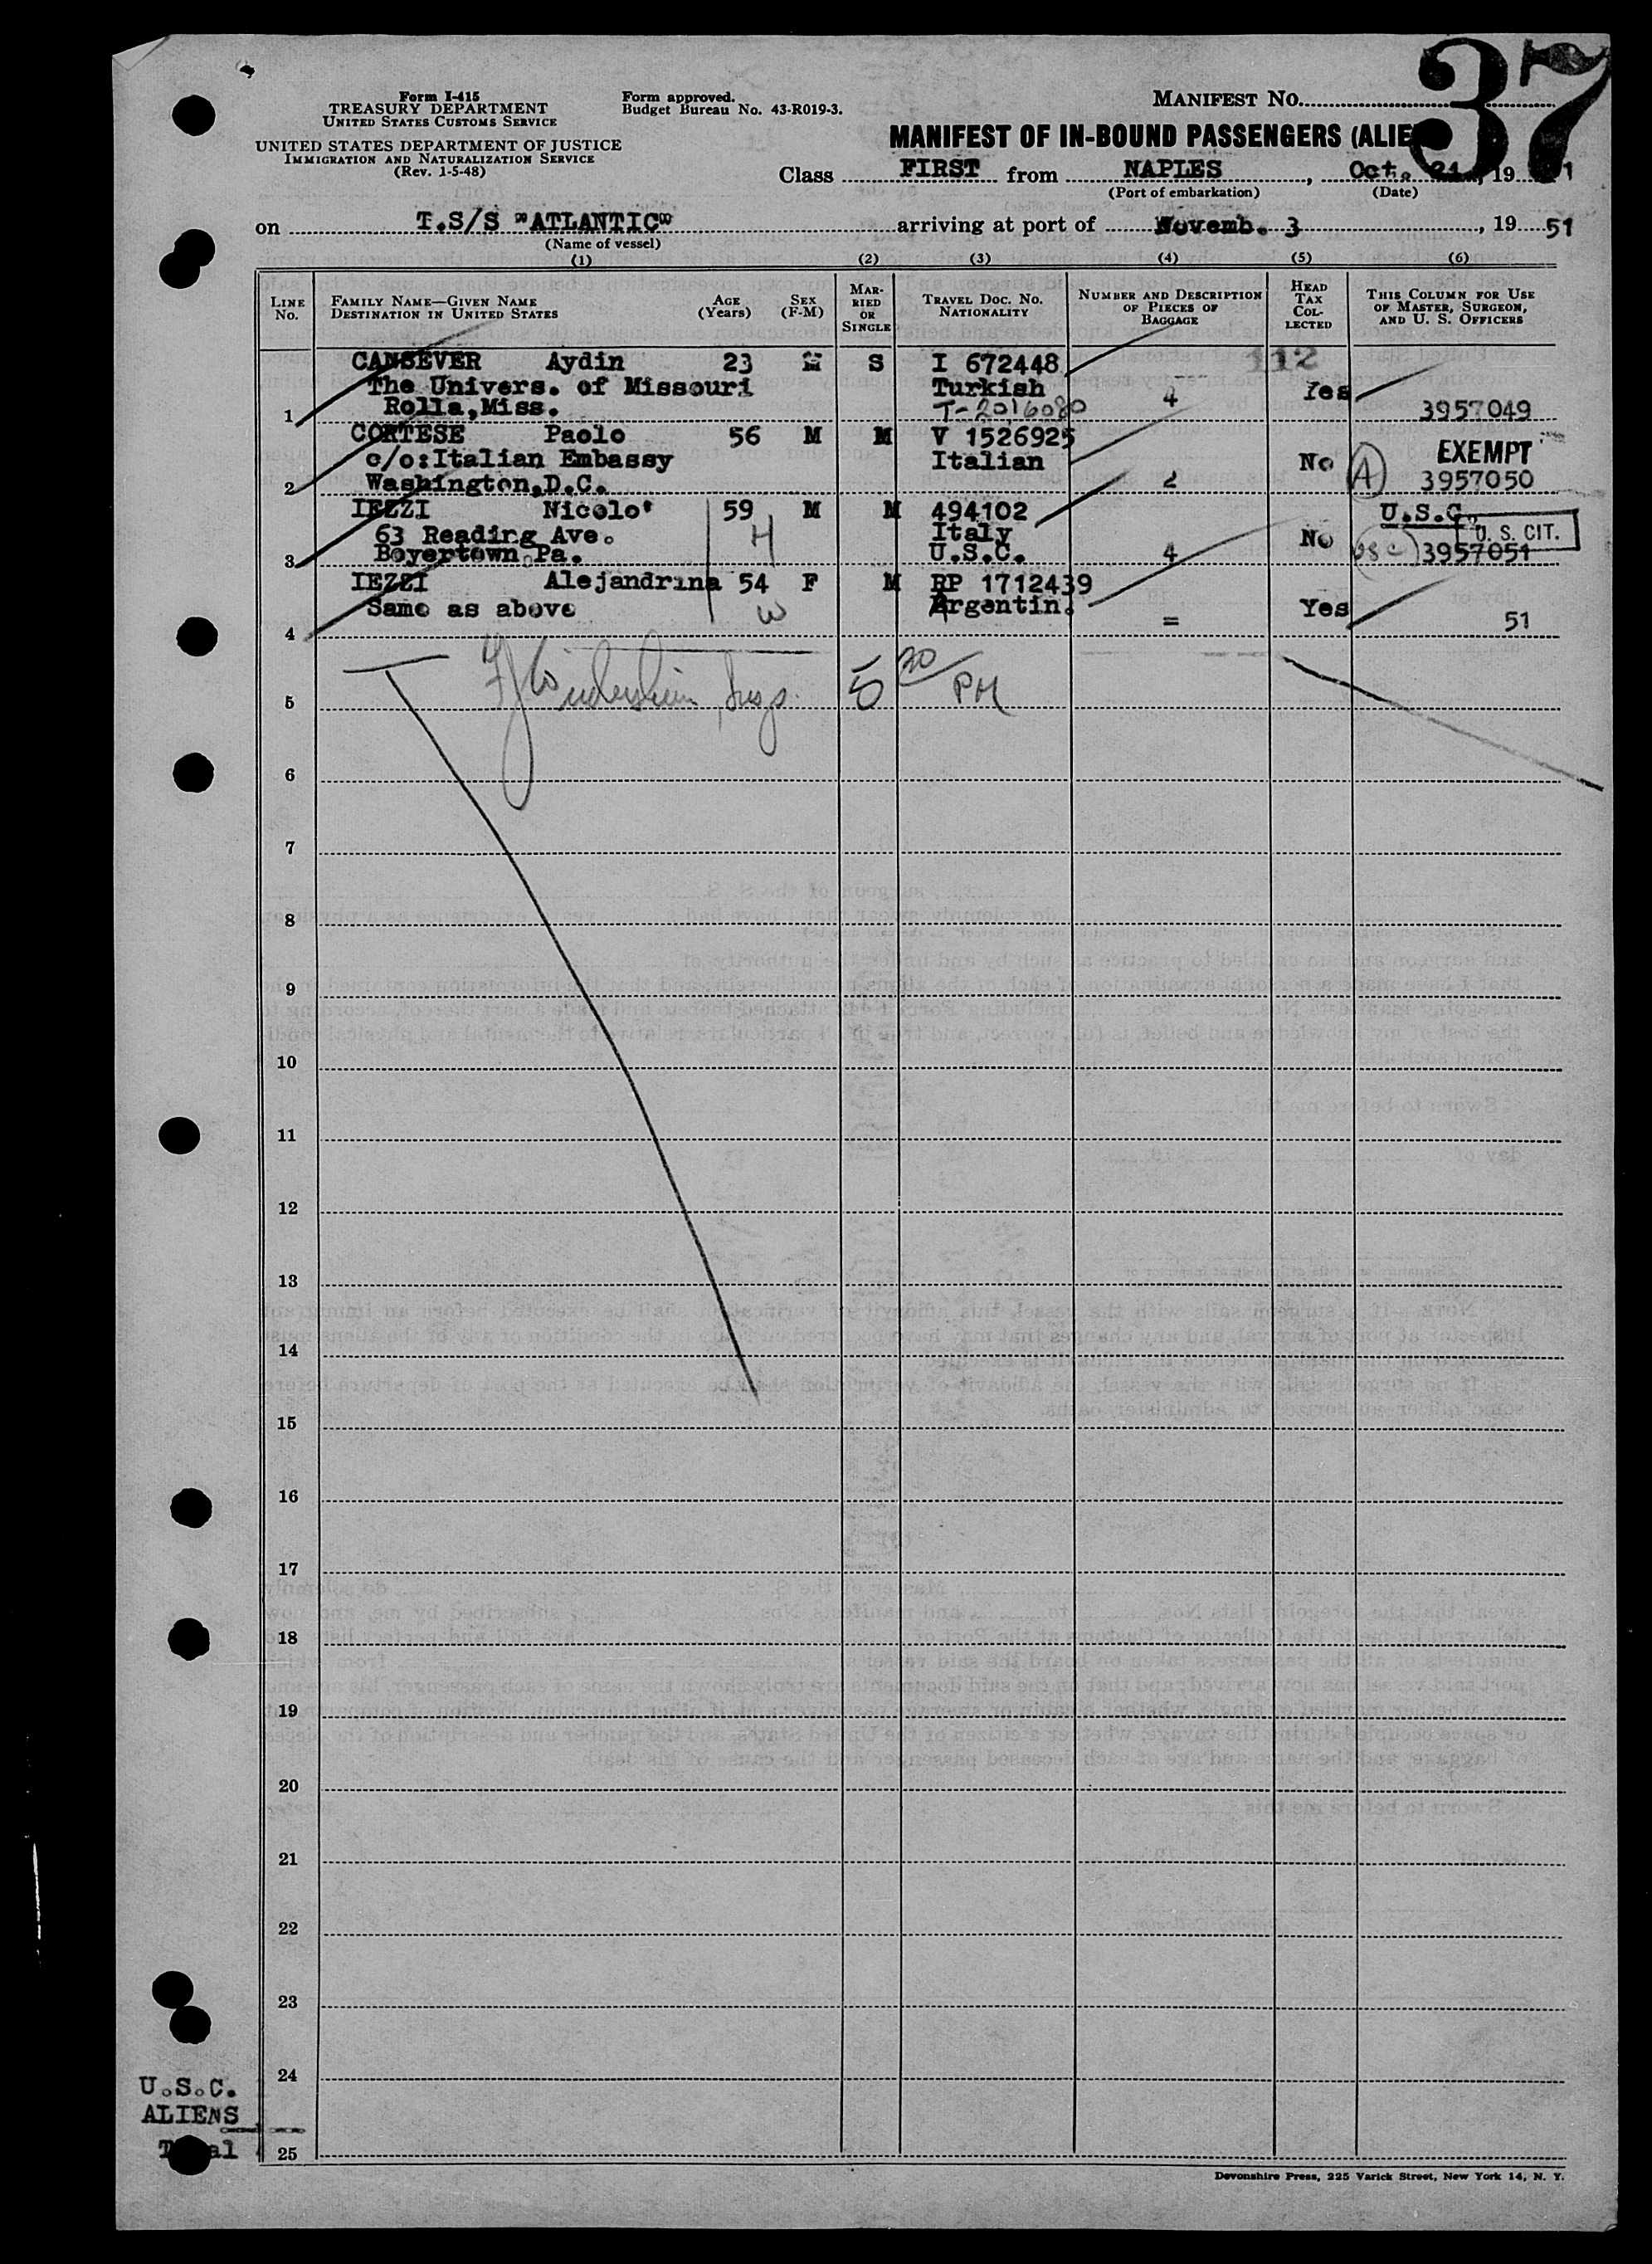 37
Form I-415
TREASURY DEPARTMENT
UNITED STATES CUSTOMS SERVICE
UNITED STATES DEPARTMENT OF JUSTICE
IMMIGRATION AND NATURALIZATION SERVICE
(Rev. 1-5-48)
Form approved.
Budget Bureau No. 43-R019-3.
MANIFEST NO.
MANIFEST OF IN-BOUND PASSENGERS (ALIE
Class FIRST from NAPLES, Oct. 21, 19 1
(Port of embarkation) (Date)
on T.S/S "ATLANTIC" arriving at port of Novemb. 3, 19 51
(Name of vessel)
(1) (2) (3) (4) (5) (6)
LINE No. FAMILY NAME—GIVEN NAME DESTINATION IN UNITED STATES AGE (Years) SEX (F-M) MARRIED OR SINGLE TRAVEL DOC. NO. NATIONALITY NUMBER AND DESCRIPTION OF PIECES OF BAGGAGE HEAD TAX COLLECTED THIS COLUMN FOR USE OF MASTER, SURGEON, AND U. S. OFFICERS
CANSEVER Aydin 23 M S I 672448 112
The Univers. of Missouri Turkish 4 Yes
1 Rolla,Miss. T-2016080 3957049
CORTESE Paolo 56 M M V 1526925 EXEMPT
c/o:Italian Embassy Italian No (A)
2 Washington,D.C. 2 3957050
IEZZI Nicolo' 59 M M 494102 U.S.C.
63 Reading Ave. H Italy No U. S. CIT.
3 Boyertown,Pa. U.S.C. 4 USC 3957051
IEZZI Alejandrina 54 F M RP 1712439
Same as above W Argentin. = Yes 51
4
5 Insp. 5 20 PM
6
7
8
9
10
11
12
13
14
15
16
17
18
19
20
21
22
23
24
U.S.C.
ALIENS
Total
25
Devonshire Press, 225 Varick Street, New York 14, N. Y.